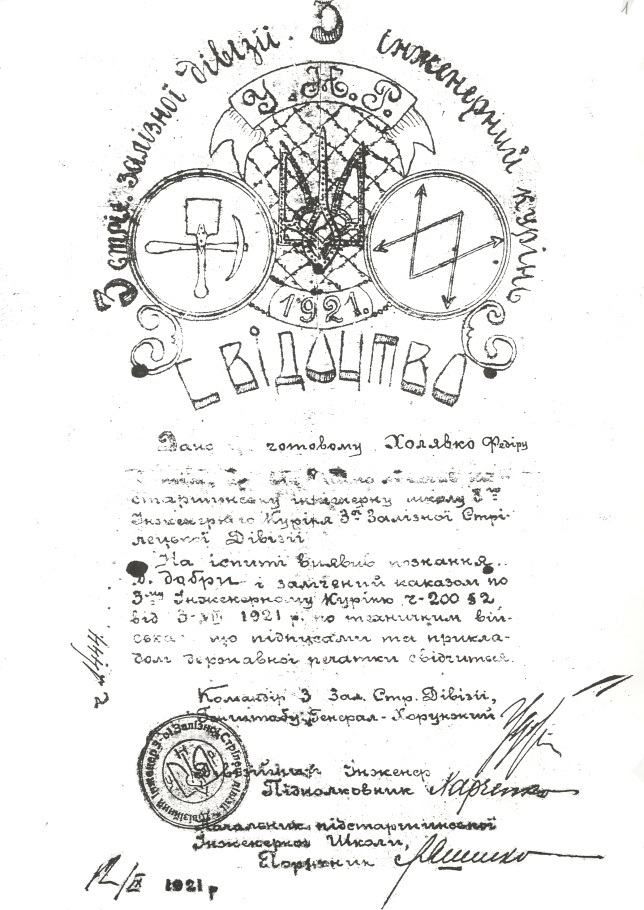 1
З стріл. залізної дівізії. 3 інженерний курінь
У.Н.Р.
1921.
СВІДОЦТВО
Дано готовому Холявко Федіру
старшинську інженерну школу 3го
Інженерного Куріня 3ої Залізної Стрі-
лецької Дівізії
На іспиті виявив познання
д. добри і залічений наказом по
3му Інженерному Куріню ч-200 §2
від 3-VIII 1921 р. по технічним вій-
ська що підписами та прикла-
дом державної печатки свідчиться.
ч 1444
Командір 3 Зал. Стр. Дівізії,
Генштабу Генерал-Хорунжий
Дівізійний Інженер
Підполковник
Начальник підстаршинської
Інженерної Школи,
Поручник
Дівізійний інженер 3-ої Залізної Стрілец. дівізії
12/IX 1921 р